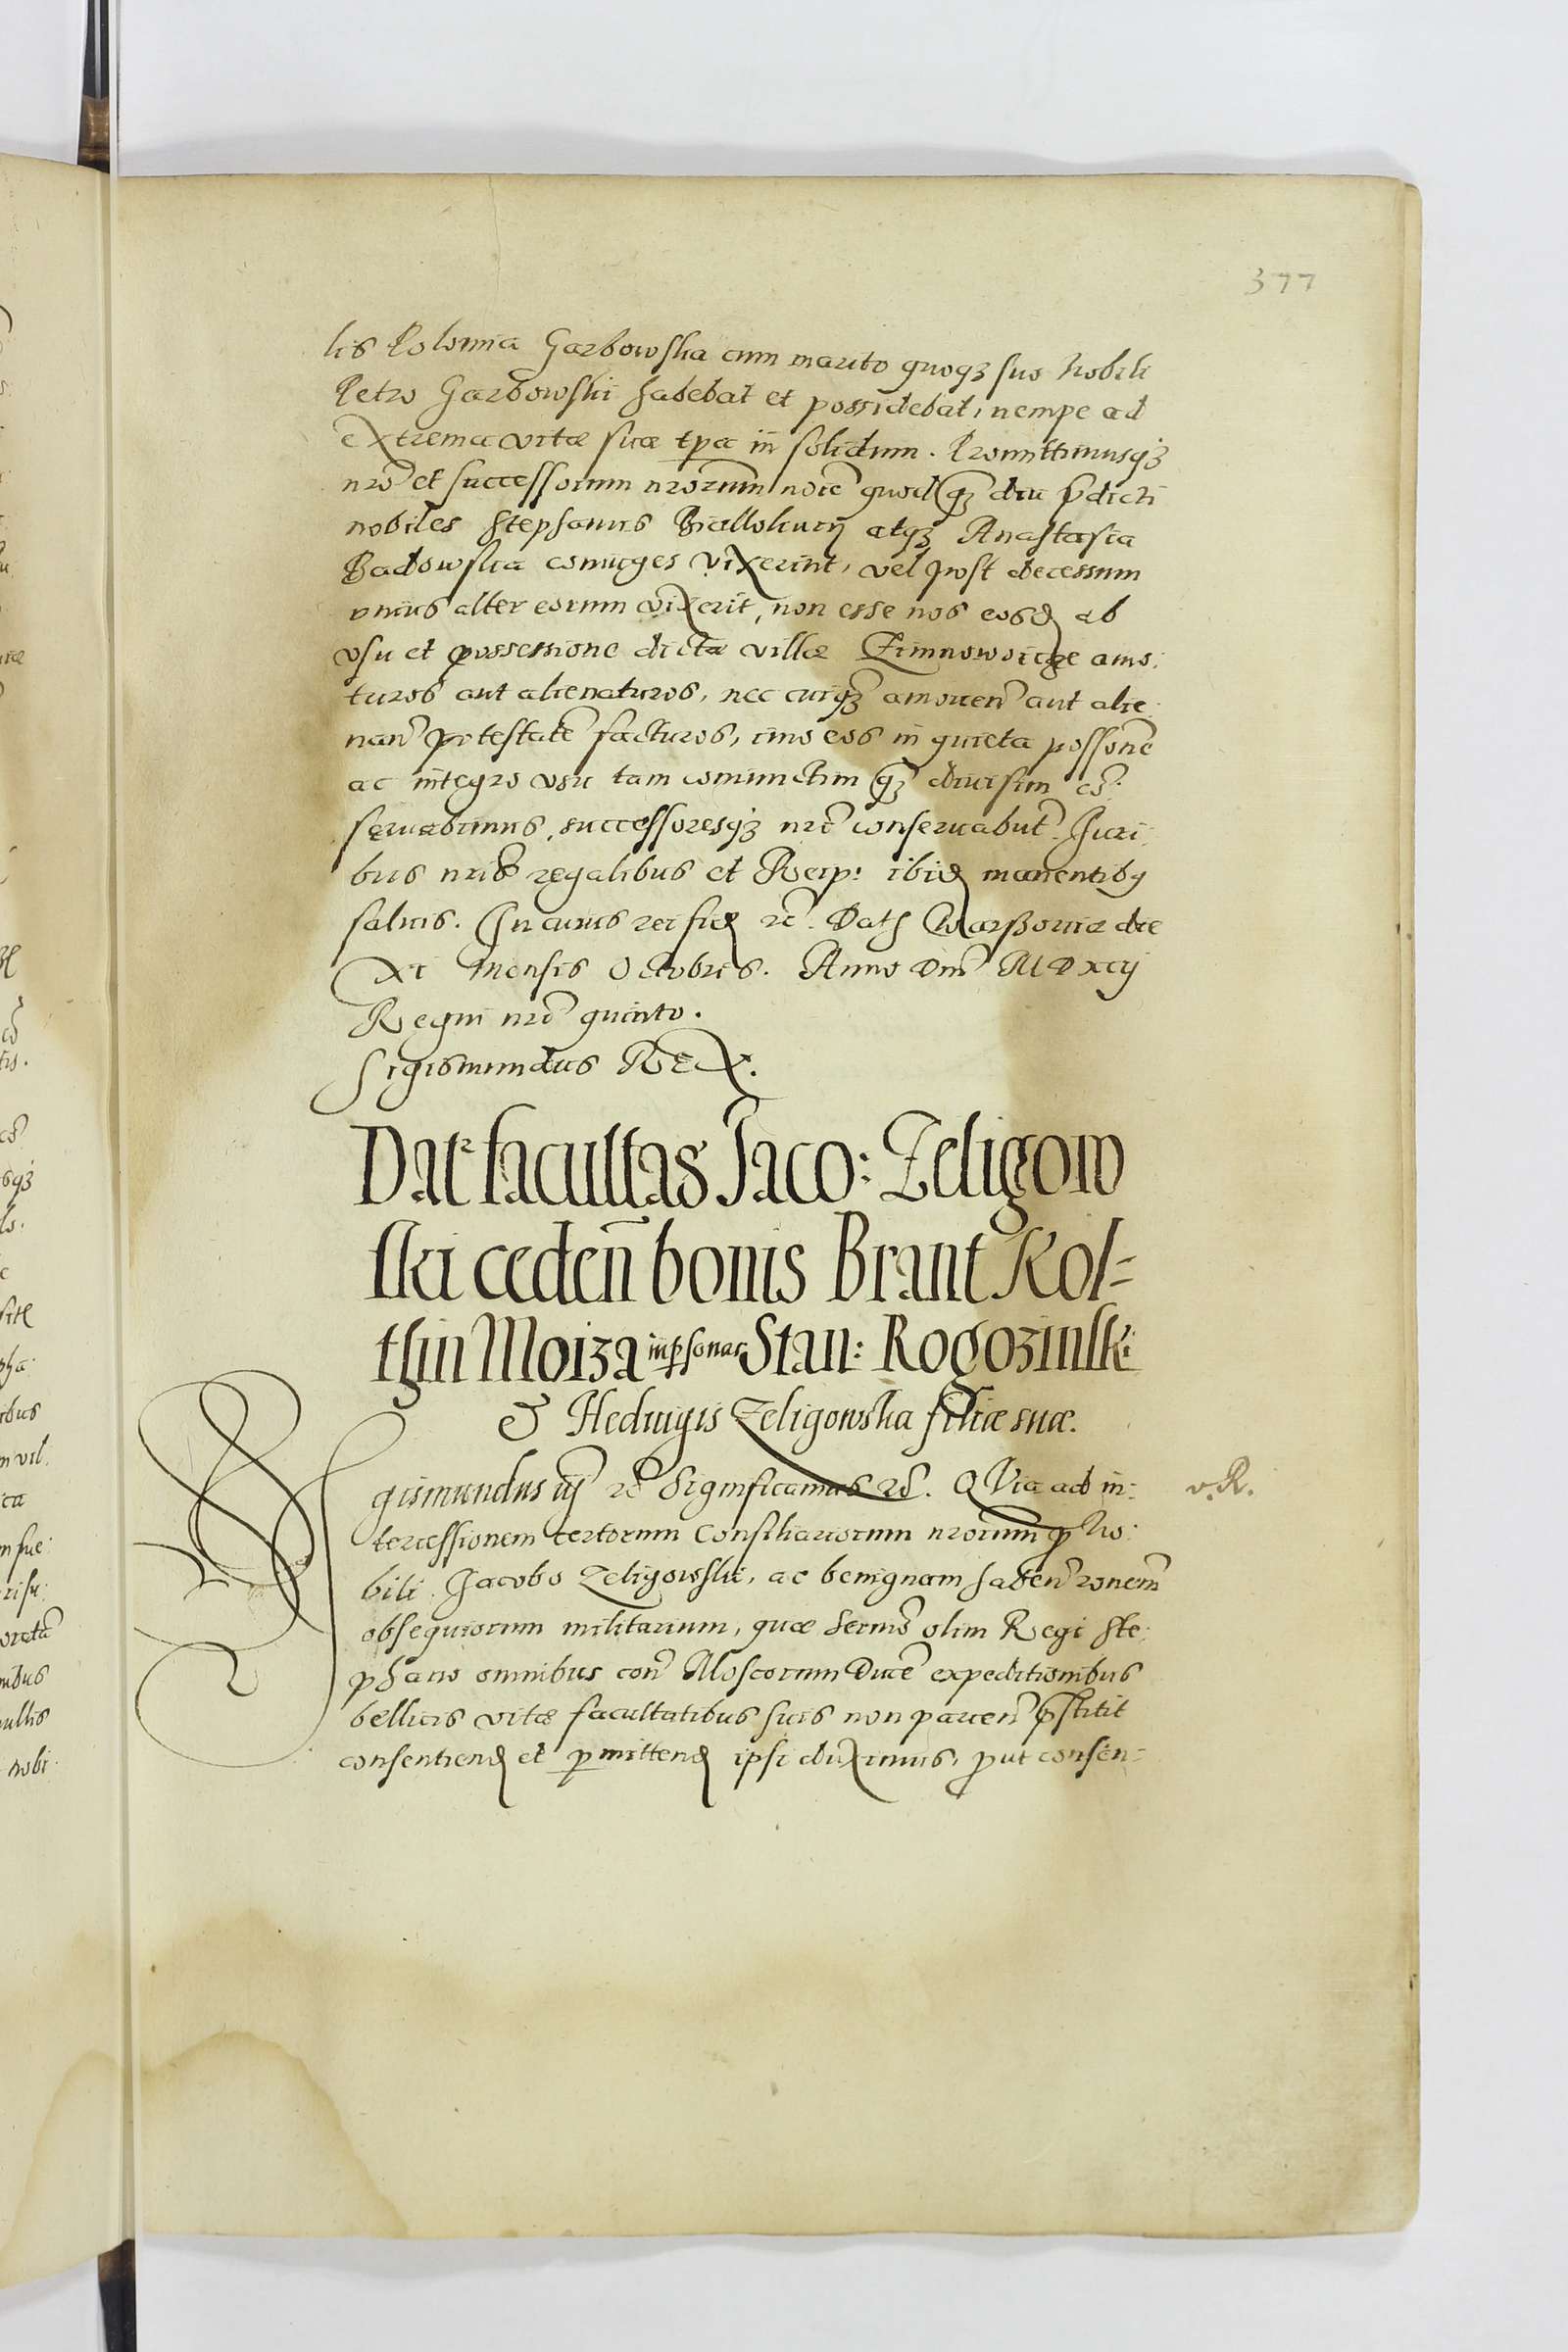 377
lis Polonia Garbowska cum marito quoqȝ suo Nobili
Petro Garbowski habebat et possidebat, nempe ad
extrema vitæ suæ tp̱a in solidum. Promittimusqȝ
nr̃o et successorum nr̃orum noīe quod qȝ̃ diu p̃dicti
nobiles Stephanus atqȝ Anastasia
Badowska coniuges vixerint, vel post decessum
vnius alter eorum vixerit, non esse nos eosd ab
vsu et possessione dictæ villæ Zimnowoicze amo:
turos aut alienaturos, nec cuiqȝ̃ amouen̄ aut alie:
nan̄ potestatē facturos, imo eos in quieta possōne
ac integro vsu tam coniunctim qȝ̃ diuisim cō:
seruabimus, successoresqȝ nr̄i conseruabūt. Juri:
bus nr̄is regalibus et Reip: ibid manentibȝ
saluis. In cuius rei fid rc̄. Dat Warssouiæ die
xi mensis Octobris. Anno Dnī MDxcij
Regni nr̄i quinto.
Sigismundus Rex.
Datr facultas Jaco: Zeligow
ski ceden̄ bonis Brant Kol=
thin Moiza in p̱sonas Stan: Rogozinski
& Heduigis Zeligowska filiæ suæ.
Sigismundus iij rc̄ Significamus rc̄. QVia ad in:
v. R.
tercessionem certorum Consiliariorum nr̄orum p̱ No:
bili Jacobo Zeligowski, ac benignam haben̄ r̄onem
obsequiorum militarium, quæ Sermō olim Regi Ste:
phano omnibus con̄ Moscorum Ducē expeditionibus
bellicis vitæ facultatibus suis non parcen̄ p̃stitit
consentiend et p̱mittend ipsi duximus, p̱ut consen: